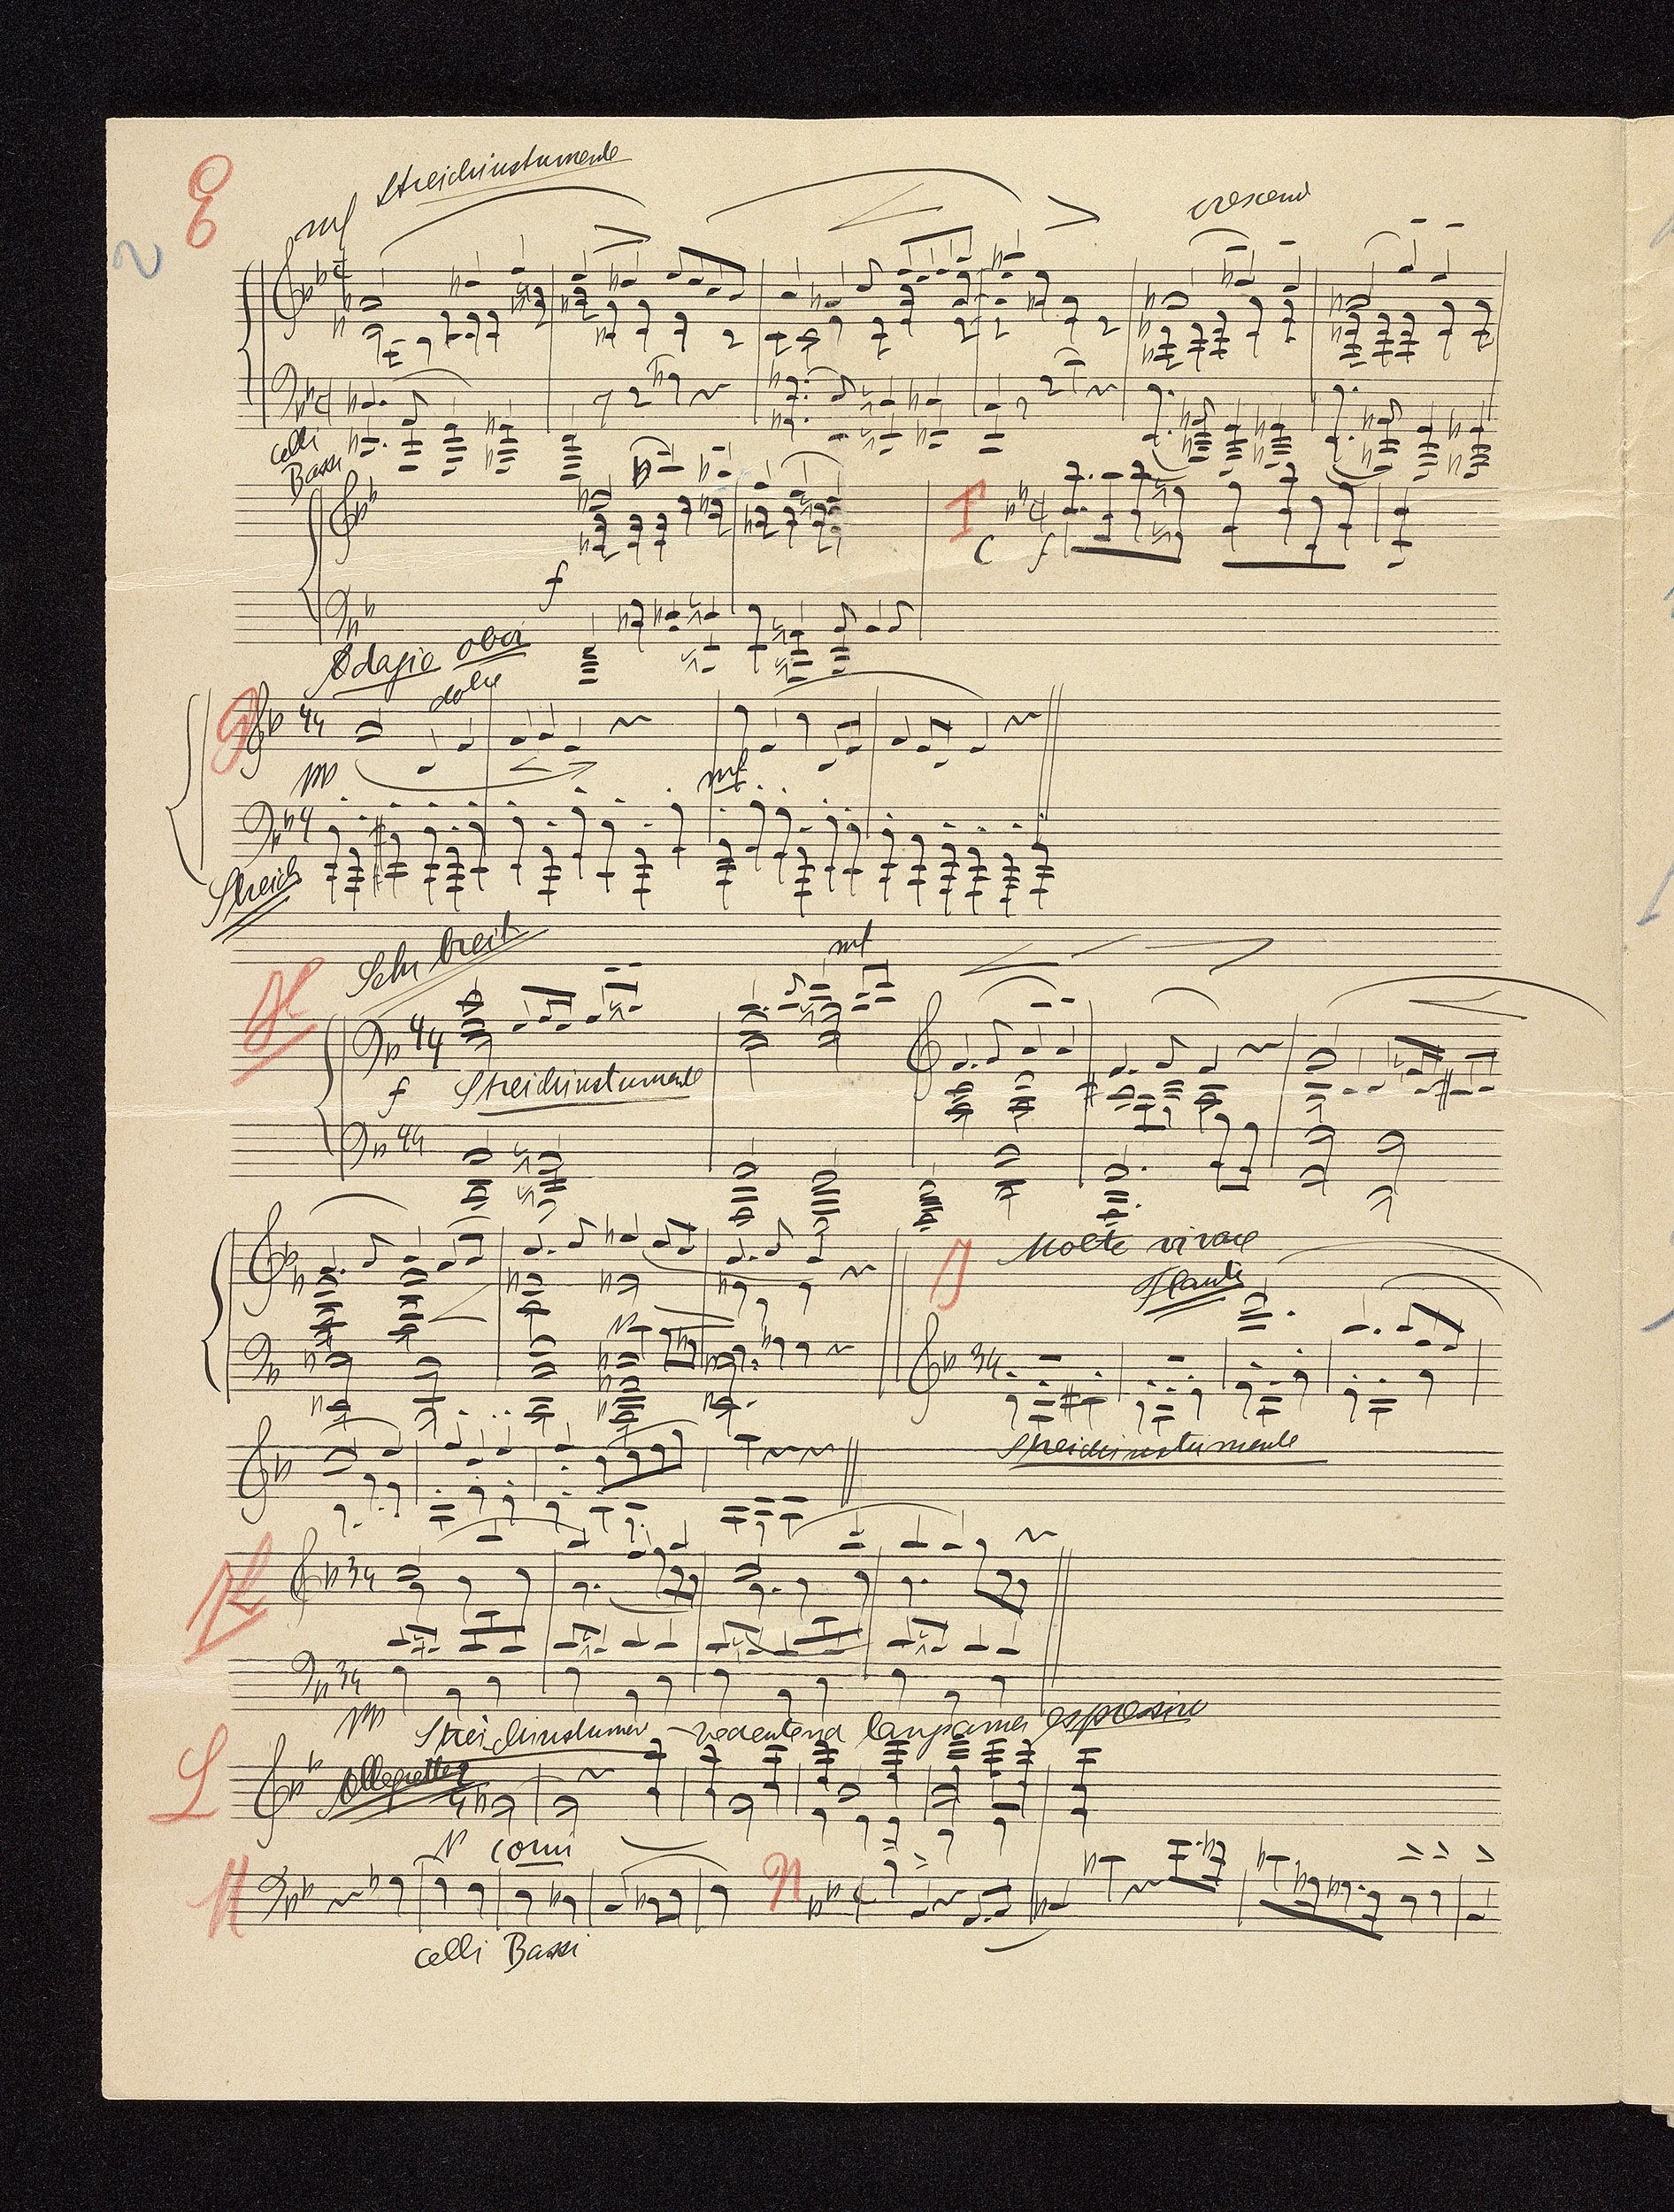 E
2
mf Streichinstumente
crescend
C
C
celli
Bassi
F
C f
f
Adagio oboi
dolce
G 44
pp
mf
4
Streich
Sehr breit
mf
H
44
f Streichinstumente
44
J Molto vivace
Flauti
34
Streichinstumente
K
34
34
pp
Streichinstumen redentend langsamer espressivo
L Allegretto
corni
M
N
celli Bassi